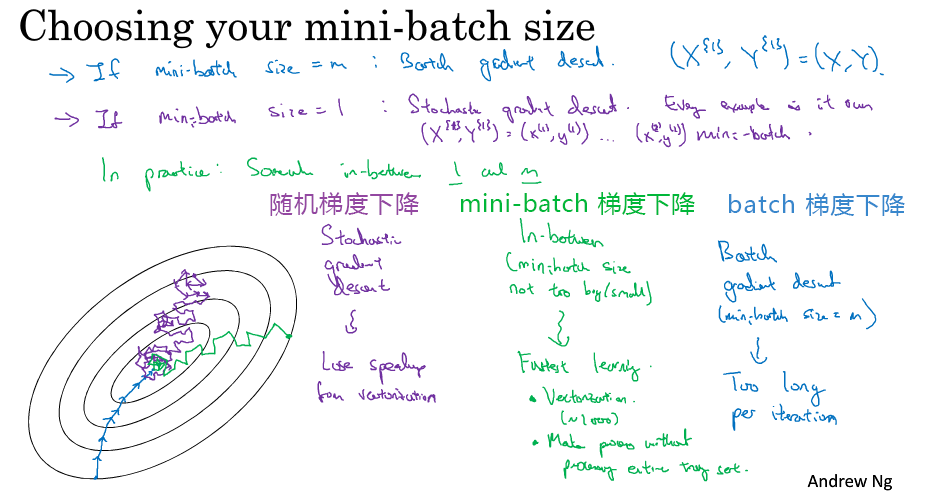 Choosing your mini-batch size
→ If mini-batch size = m : Batch gradient descent. (X^{1}, Y^{1}) = (X, Y).
→ If mini-batch size = 1 : Stochastic gradient descent. Every example is it own
(X^{1}, Y^{1}) = (x^(1), y^(1)) ... mini-batch.
In practice: Somewhere in-between 1 and m
随机梯度下降 mini-batch 梯度下降 batch 梯度下降
Stochastic
gradient
descent
Lose speedup
from vectorization
In-between
(mini-batch size
not too big/small)
Fastest learning.
• Vectorization.
(~1000)
• Make progress without
processing entire training set.
Batch
gradient descent
(mini-batch size = m)
Too long
per iteration
Andrew Ng